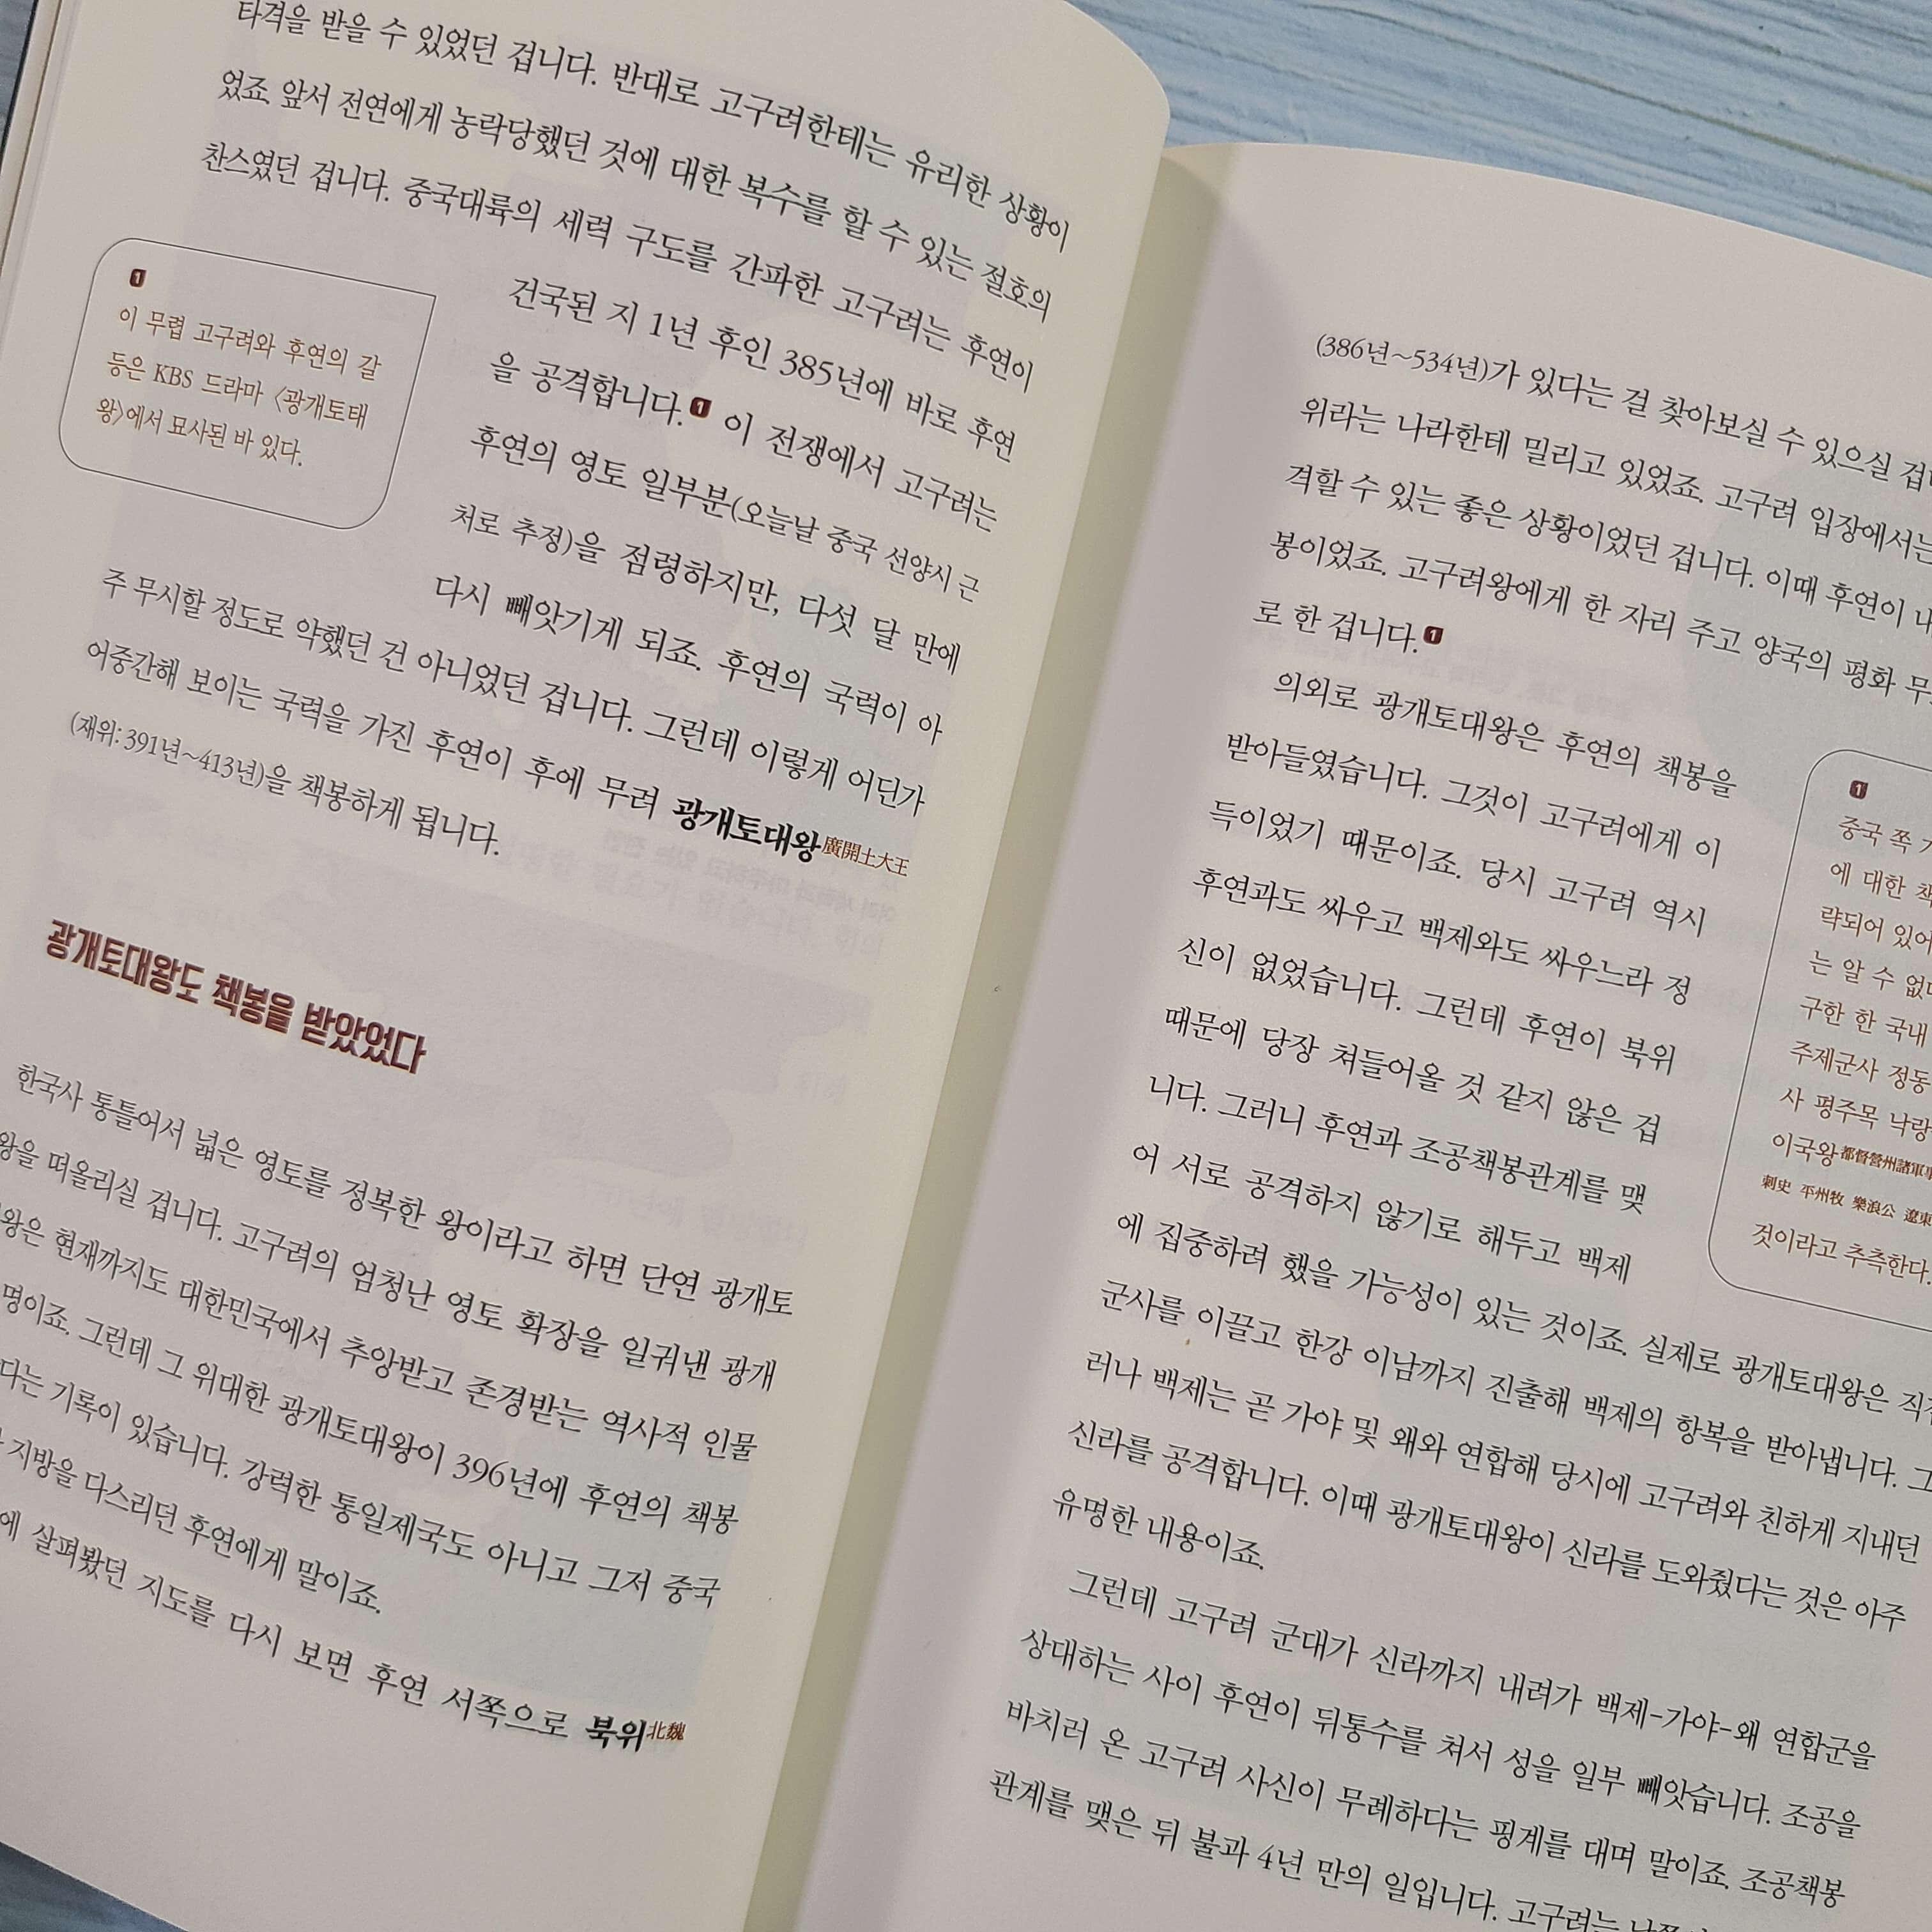 타격을 받을 수 있었던 겁니다. 반대로 고구려한테는 유리한 상황이
었죠. 앞서 전연에게 농락당했던 것에 대한 복수를 할 수 있는 절호의
찬스였던 겁니다. 중국대륙의 세력 구도를 간파한 고구려는 후연이
건국된 지 1년 후인 385년에 바로 후연
을 공격합니다.1 이 전쟁에서 고구려는
후연의 영토 일부분(오늘날 중국 선양시 근
처로 추정)을 점령하지만, 다섯 달 만에
다시 빼앗기게 되죠. 후연의 국력이 아
주 무시할 정도로 약했던 건 아니었던 겁니다. 그런데 이렇게 어딘가
어중간해 보이는 국력을 가진 후연이 후에 무려 광개토대왕廣開土大王
(재위: 391년~413년)을 책봉하게 됩니다.
1
이 무렵 고구려와 후연의 갈
등은 KBS 드라마 〈광개토태
왕〉에서 묘사된 바 있다.
광개토대왕도 책봉을 받았었다
한국사 통틀어서 넓은 영토를 정복한 왕이라고 하면 단연 광개토
왕을 떠올리실 겁니다. 고구려의 엄청난 영토 확장을 일궈낸 광개
왕은 현재까지도 대한민국에서 추앙받고 존경받는 역사적 인물
명이죠. 그런데 그 위대한 광개토대왕이 396년에 후연의 책봉
다는 기록이 있습니다. 강력한 통일제국도 아니고 그저 중국
지방을 다스리던 후연에게 말이죠.
에 살펴봤던 지도를 다시 보면 후연 서쪽으로 북위北魏
(386년~534년)가 있다는 걸 찾아보실 수 있으실 겁
위라는 나라한테 밀리고 있었죠. 고구려 입장에서는
격할 수 있는 좋은 상황이었던 겁니다. 이때 후연이 내
봉이었죠. 고구려왕에게 한 자리 주고 양국의 평화 무
로 한 겁니다.1
의외로 광개토대왕은 후연의 책봉을
받아들였습니다. 그것이 고구려에게 이
득이었기 때문이죠. 당시 고구려 역시
후연과도 싸우고 백제와도 싸우느라 정
신이 없었습니다. 그런데 후연이 북위
때문에 당장 쳐들어올 것 같지 않은 겁
니다. 그러니 후연과 조공책봉관계를 맺
어 서로 공격하지 않기로 해두고 백제
에 집중하려 했을 가능성이 있는 것이죠. 실제로 광개토대왕은 직접
군사를 이끌고 한강 이남까지 진출해 백제의 항복을 받아냅니다. 그
러나 백제는 곧 가야 및 왜와 연합해 당시에 고구려와 친하게 지내던
신라를 공격합니다. 이때 광개토대왕이 신라를 도와줬다는 것은 아주
유명한 내용이죠.
그런데 고구려 군대가 신라까지 내려가 백제-가야-왜 연합군을
상대하는 사이 후연이 뒤통수를 쳐서 성을 일부 빼앗습니다. 조공을
바치러 온 고구려 사신이 무례하다는 핑계를 대며 말이죠. 조공책봉
관계를 맺은 뒤 불과 4년 만의 일입니다. 고구려는
1
중국 쪽
에 대한 책
략되어 있어
는 알 수 없
구한 한 국내
주제군사 정동
사 평주목 낙랑
이국왕都督營州諸軍
刺史 平州牧 樂浪公 遼東
것이라고 추측한다.